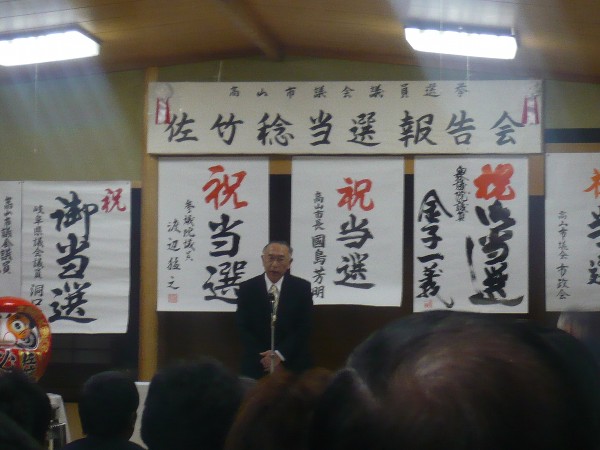 高山市議会議員選挙
佐竹稔当選報告会
祝
御当選
岐阜県議会議員
高山市議会議員
祝
当選
参議院議員
渡辺猛之
祝
当選
高山市長
國島芳明
祝
御当選
衆議院議員
金子一義
高山市議会
市政会